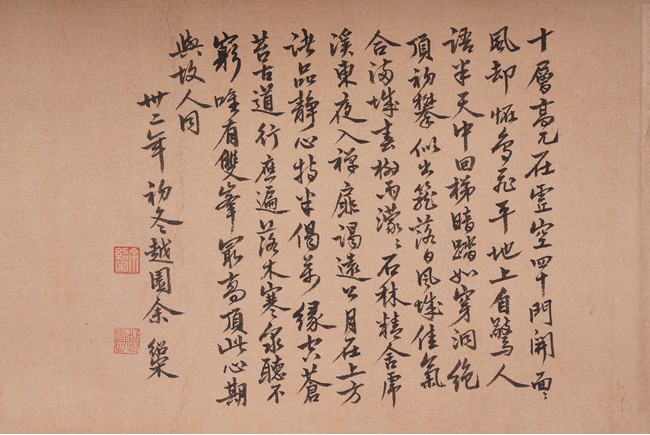 十層高兀在虛空四十門開面〻
風却怪鳥飛平地上自驚人
語半天中回梯暗踏如穿洞絶
頂初攀似出籠落日鳳城佳氣
合滿城春樹雨濛〻石林精舍虎
溪東夜入禪扉謁遠公月在上方
諸品靜心持半偈萬緣空蒼
苔古道行應遍落木寒泉聽不
窮唯有雙峯最高頂此心期
與故人同
卅二年初冬越園余紹宋